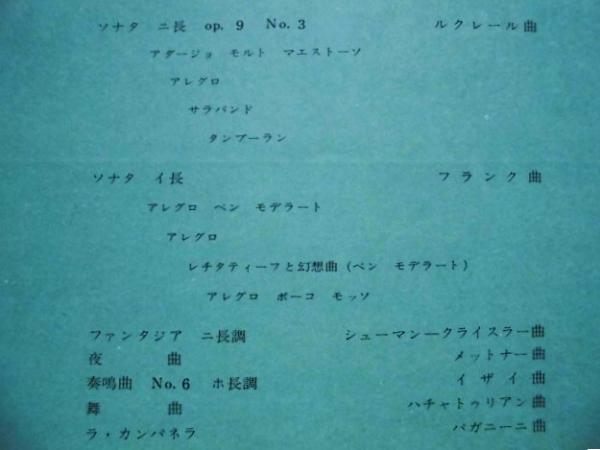 ソナタ ニ長 op. 9 No. 3 ルクレール曲
アダージョ モルト マエストーソ
アレグロ
サラバンド
タンブーラン
ソナタ イ長 フランク曲
アレグロ ベン モデラート
アレグロ
レチタティーフと幻想曲(ベン モデラート)
アレグロ ポーコ モッソ
ファンタジア ニ長調 シューマン―クライスラー曲
夜曲 メットナー曲
奏鳴曲 No. 6 ホ長調 イザイ曲
舞曲 ハチャトゥリアン曲
ラ・カンパネラ パガニーニ曲